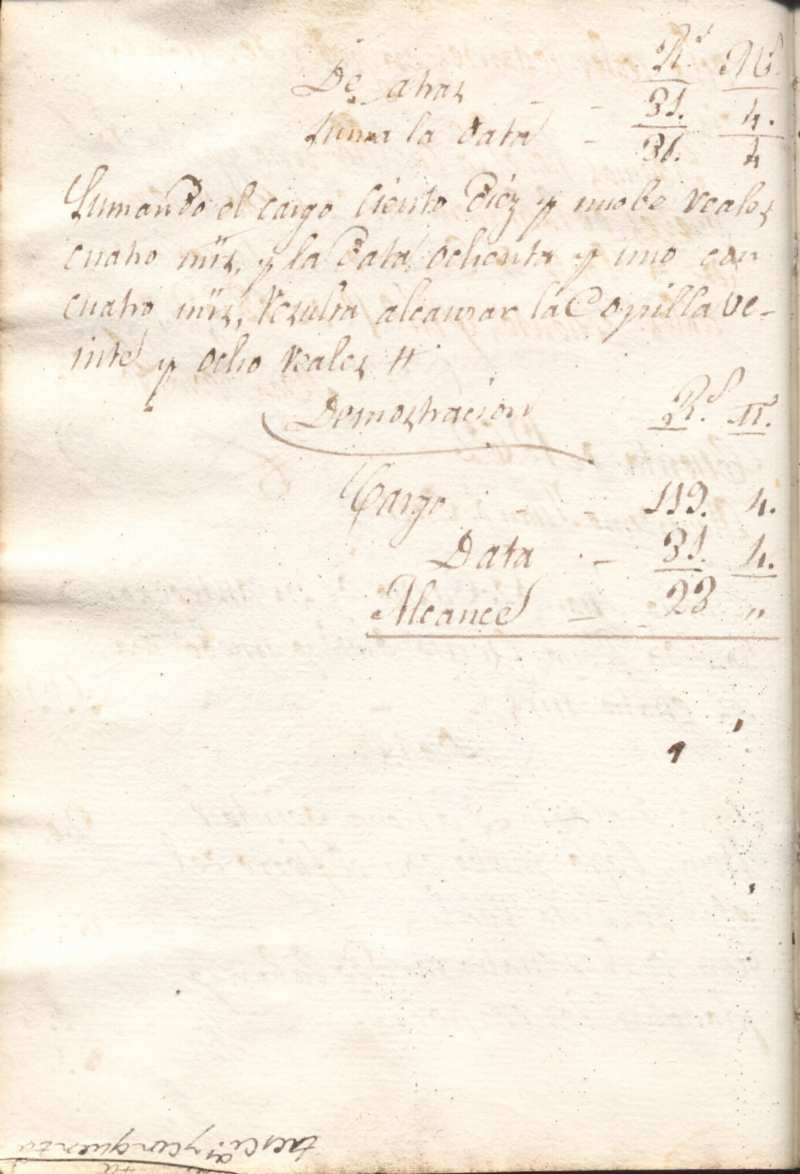 R.s M.s
De atras - - 81. 4.
suma la data - 81. 4
Sumando el cargo ciento diez y nuebe reales
cuatro mrs, y la Data ochenta y uno con
cuatro mrs, resulta alcanzar la Copilla ve-
inte y ocho reales #
Demostracion R.s M.
Cargo - - 119. 4.
Data - 81. 4.
Alcance - - 28 "